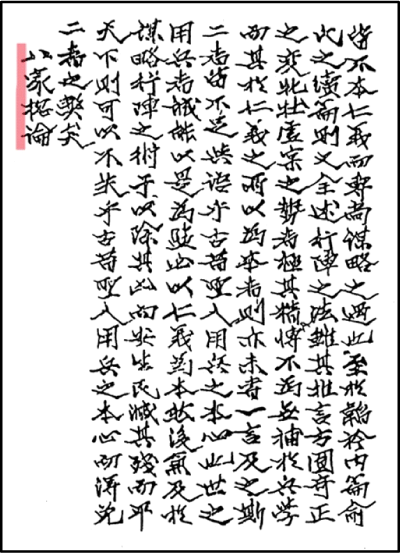 皆不本仁義而専尚謀略之過也至於韜鈐内篇
此之續篇則又全述行陣之法雖其推言方圓奇正
之変牝牡虚実之勢者極其精博不為無補於兵学
而其於仁義之所以為本者則亦未嘗一言及之斯
二者皆不足與語乎古昔聖人用兵之本心也世之
用兵者誠能以是為監必以仁義為本然後兼及於
謀略行陣之術于以除其凶而安生民滅其残而平
天下則可以不失乎古昔聖人用兵之本心而得免
二者之弊矣
八家総論